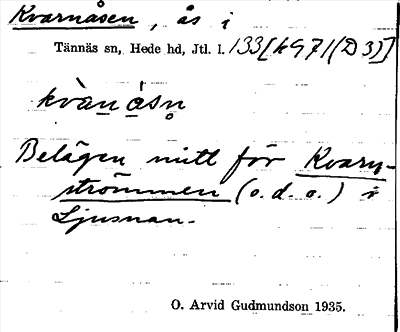 Kvarnåsen, ås i
Tännäs sn, Hede hd, Jtl. l. 133[kG71(D3)]
kvàn̲ á̲sn̥
Belägen mitt för Kvarn-
strömmen (o.d.o.) i
Ljusnan.
O. Arvid Gudmundson 1935.